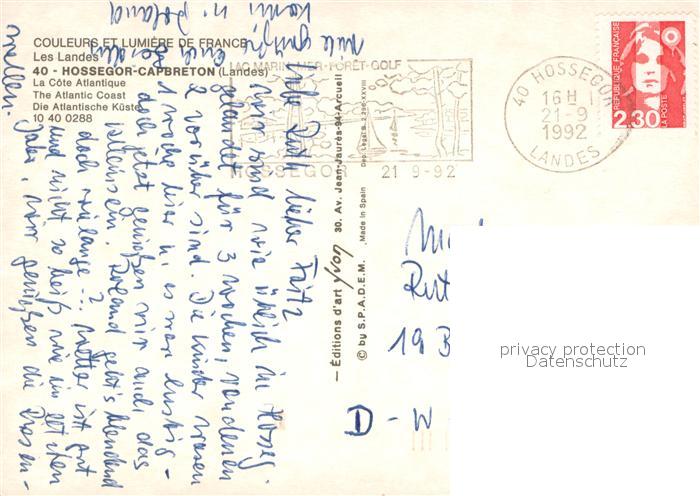 COULEURS ET LUMIÈRE DE FRANCE
Les Landes
40 - HOSSEGOR-CAPBRETON (Landes)
La Côte Atlantique
The Atlantic Coast
Die Atlantische Küste
10 40 0288
LAC MARIN-MER-FORÊT-GOLF
HOSSEGOR 21 9-92
40 HOSSEGOR
16 H
21-9
1992
LANDES
RÉPUBLIQUE FRANÇAISE
2,30
LA POSTE
— Éditions d'art yvon 30, Av. Jean-Jaurès-94-Arcueil
© by S.P.A.D.E.M. Made in Spain
Liebe Ruth, lieber Fritz
wir sind wie üblich in Hosseg.
gelandet für 3 Wochen, von denen
2 vorüber sind. Die Kinder waren
1 Woche hier u. es war lustig -
doch jetzt genießen wir auch das
Alleinsein. Roland geht's blendend
doch wie lange ..? Wetter ist gut
und nicht so heiß wie im letzten
Jahr, wir genießen die Riesen-
wellen.
Viele Grüße
Eure
u. Roland
19 B
D - W
privacy protection
Datenschutz